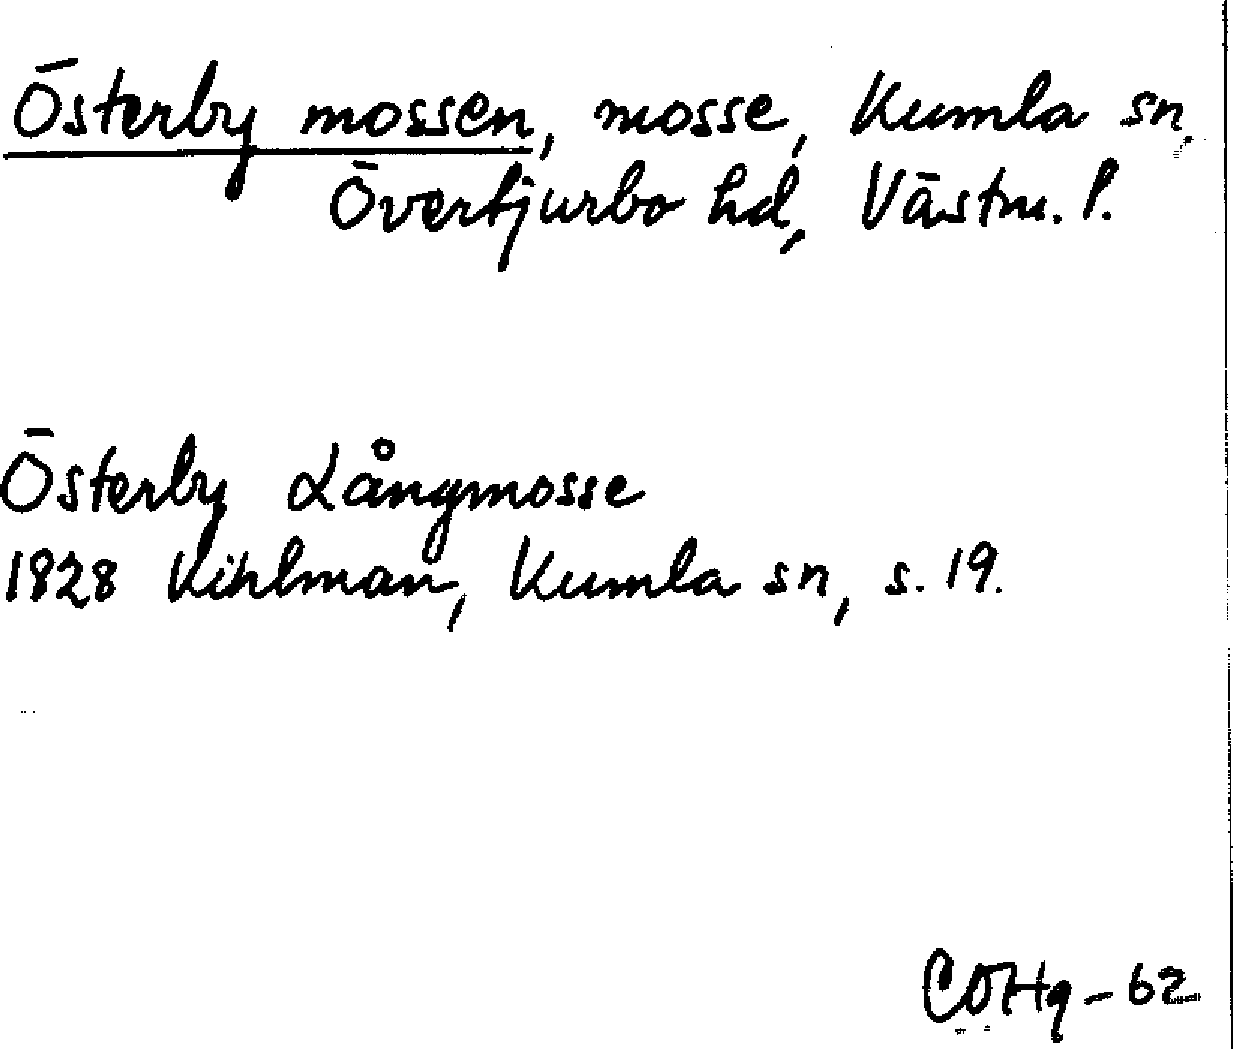 Österby mossen, mosse, Kumla sn,
Övertjurbo hd, Västm. l.
Österby Långmosse
1828 Kihlman, Kumla sn, s. 19.
COHg-62